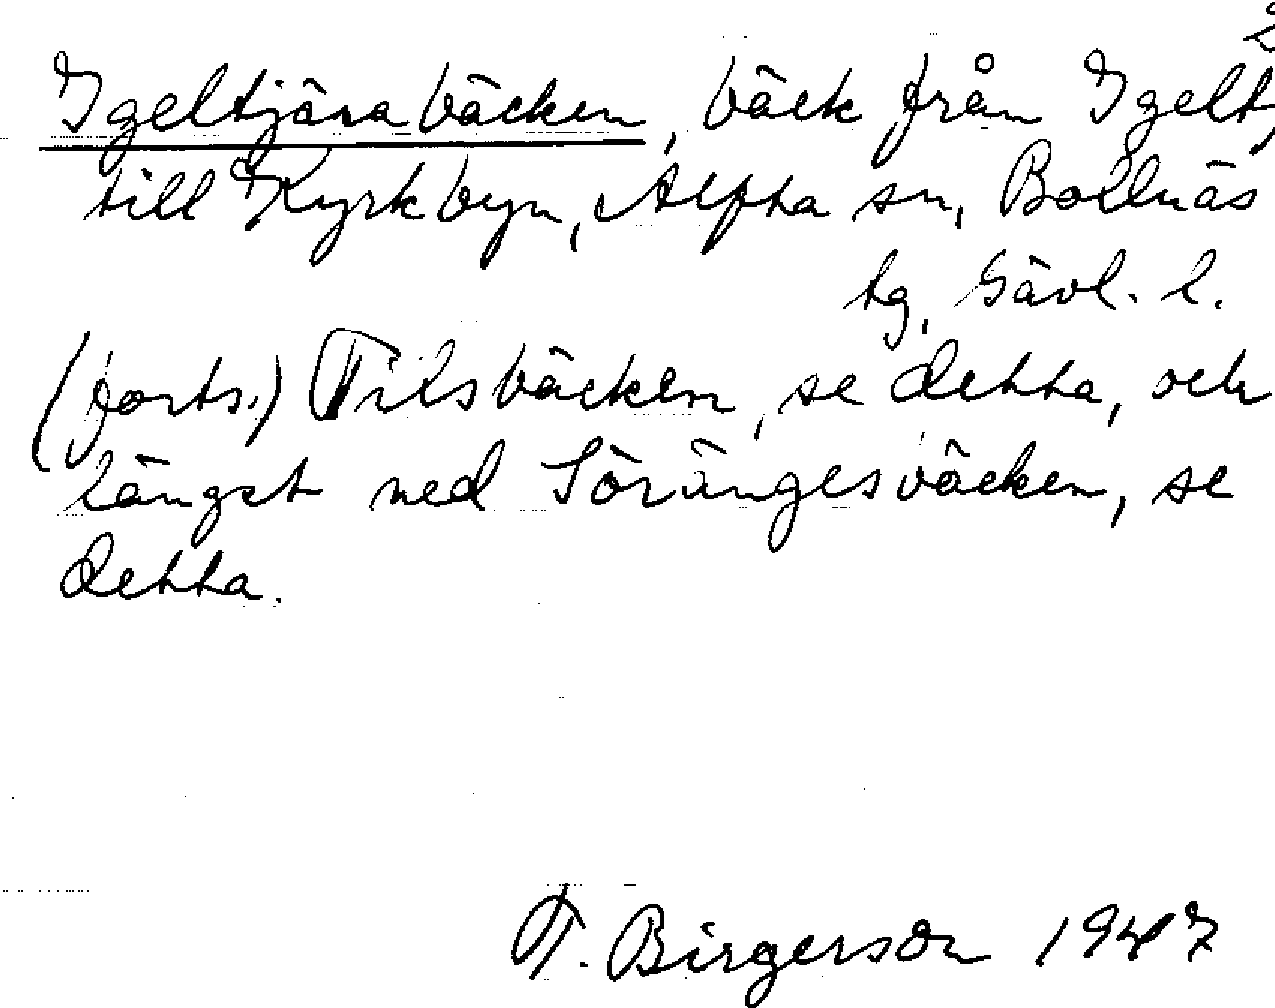 2
Igeltjärnabäcken, bäck från Igeltj
till Kyrkbyn, Alfta sn, Bollnäs
tg, Gävl. l.
(forts.) Tilsbäcken, se detta, och
längst ned Sörängesbäcken, se
detta.
T. Birgerson 1947